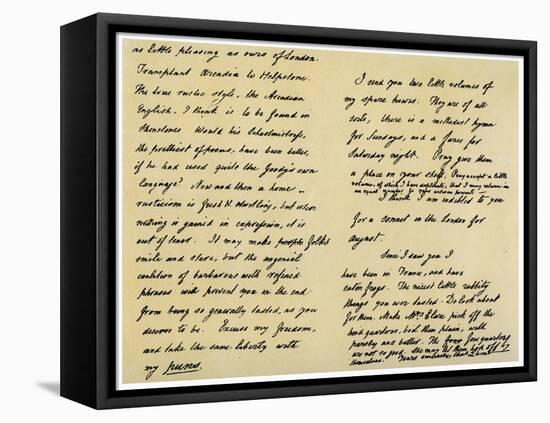 as little pleasing as ours of London.
Transplant Arcadia to Helpstone.
The true rustic style, the Arcadian
English, I think is to be found in
Shenstone. Would his Schoolmistress,
the prettiest of poems, have been better,
if he had used quite the Goody's own
language? Now and then a home-
rusticism is fresh & startling, but where
nothing is gained in expression, it is
out of tenor. It may make folks
smile and stare, but the ungenial
coalition of barbarous with refined
phrases will prevent you in the end
from being so generally tasted, as you
deserve to be. Excuse my freedom,
and take the same liberty with
my puns.
I send you two little volumes of
my spare hours. They are of all
sorts, there is a methodist hymn
for Sundays, and a farce for
Saturday night. Pray give them
a place on your shelf. Pray accept a little
volume, of which I have duplicate, that I may return in
an equal number to your welcome presents —
I think I am indebted to you
for a sonnet in the London for
August.
Since I saw you I
have been in France, and have
eaten frogs. The nicest little rabbity
things you ever tasted. Do look about
for them. Make Mrs. Clare pick off the
hind quarters, boil them plain, with
parsley and butter. The fore quarters
are not so good. She may let them hop off by
themselves. Yours sincerely, Chas Lamb